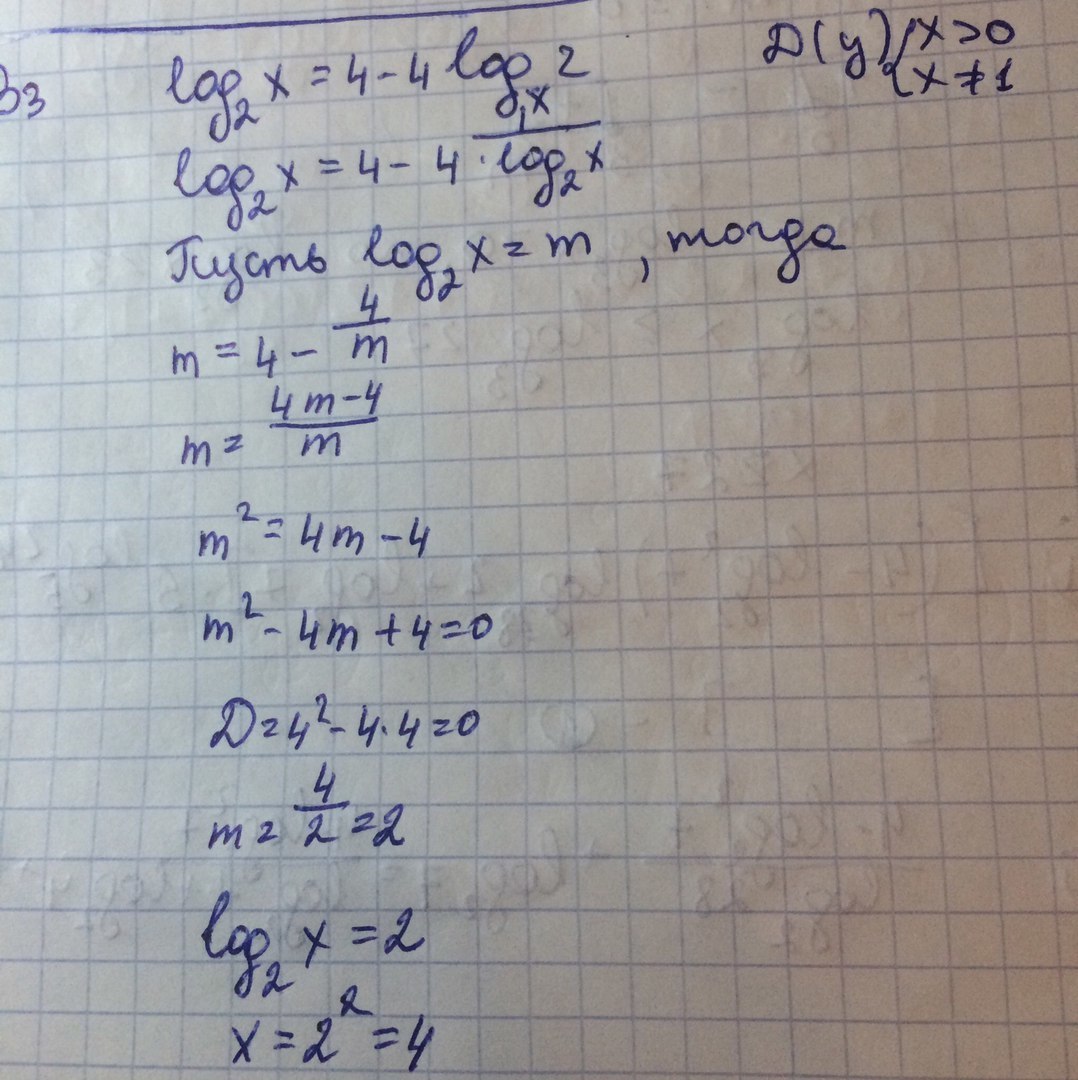 В3
log₂ x = 4 - 4 logₓ 2
D(y) { x > 0
x ≠ 1
log₂ x = 4 - 4 · 1/log₂ x
Пусть log₂ x = m , тогда
m = 4 - 4/m
m = (4m-4)/m
m² = 4m - 4
m² - 4m + 4 = 0
D = 4² - 4·4 = 0
m = 4/2 = 2
log₂ x = 2
x = 2² = 4